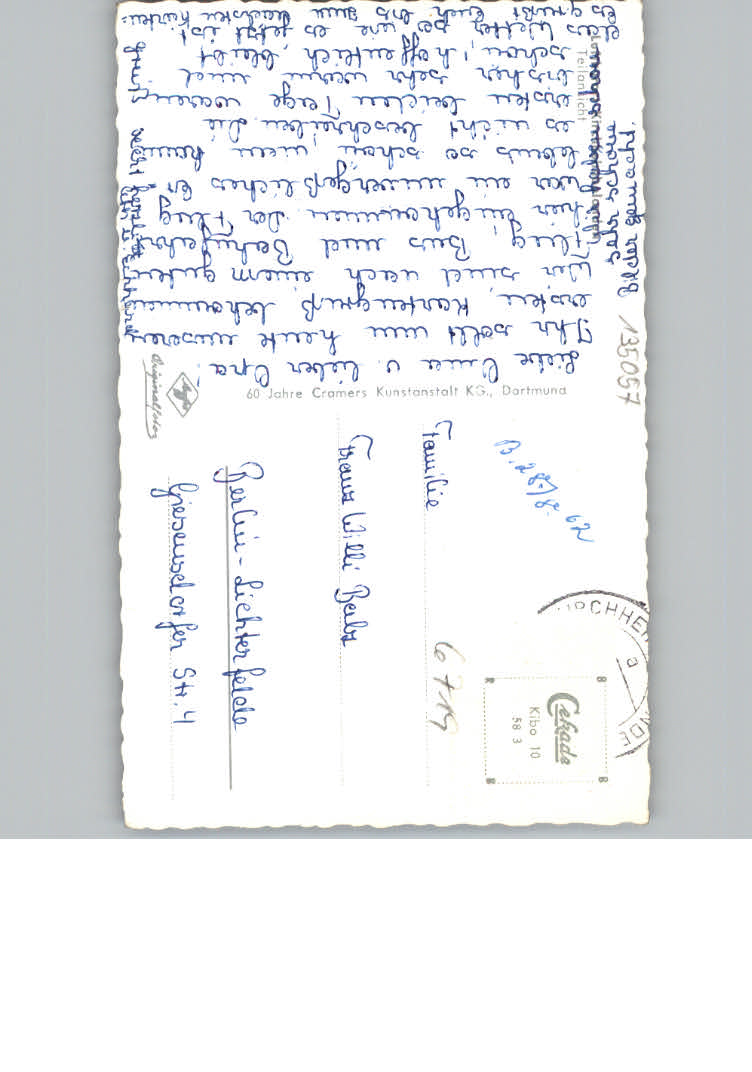 Liebe Oma u. lieber Opa!
Ihr sollt nun heute unseren
ersten Kartengruß bekommen
Wir sind nach einem guten
Flug, Bus und Bahnfahrt
hier angekommen. Der Flug
war ein unvergeßliches Er
lebnis so schön man kann
es nicht beschreiben. Die
ersten beiden Tage waren
bisher sehr warm und
schön, hoffentlich bleibt
das Wetter so wie es jetzt ist
es grüßt Euch bis zum nächsten Karten=
gruß
recht herzlich
Teilansicht
135057
60 Jahre Cramers Kunstanstalt KG., Dortmund
Agfa
Originalfoto
B. 28/8. 62
Familie
Franz Willi
Berlin-Lichterfelde
Giesensdorfer Str. 4
6719
Cekade
Kibo 10
58 3